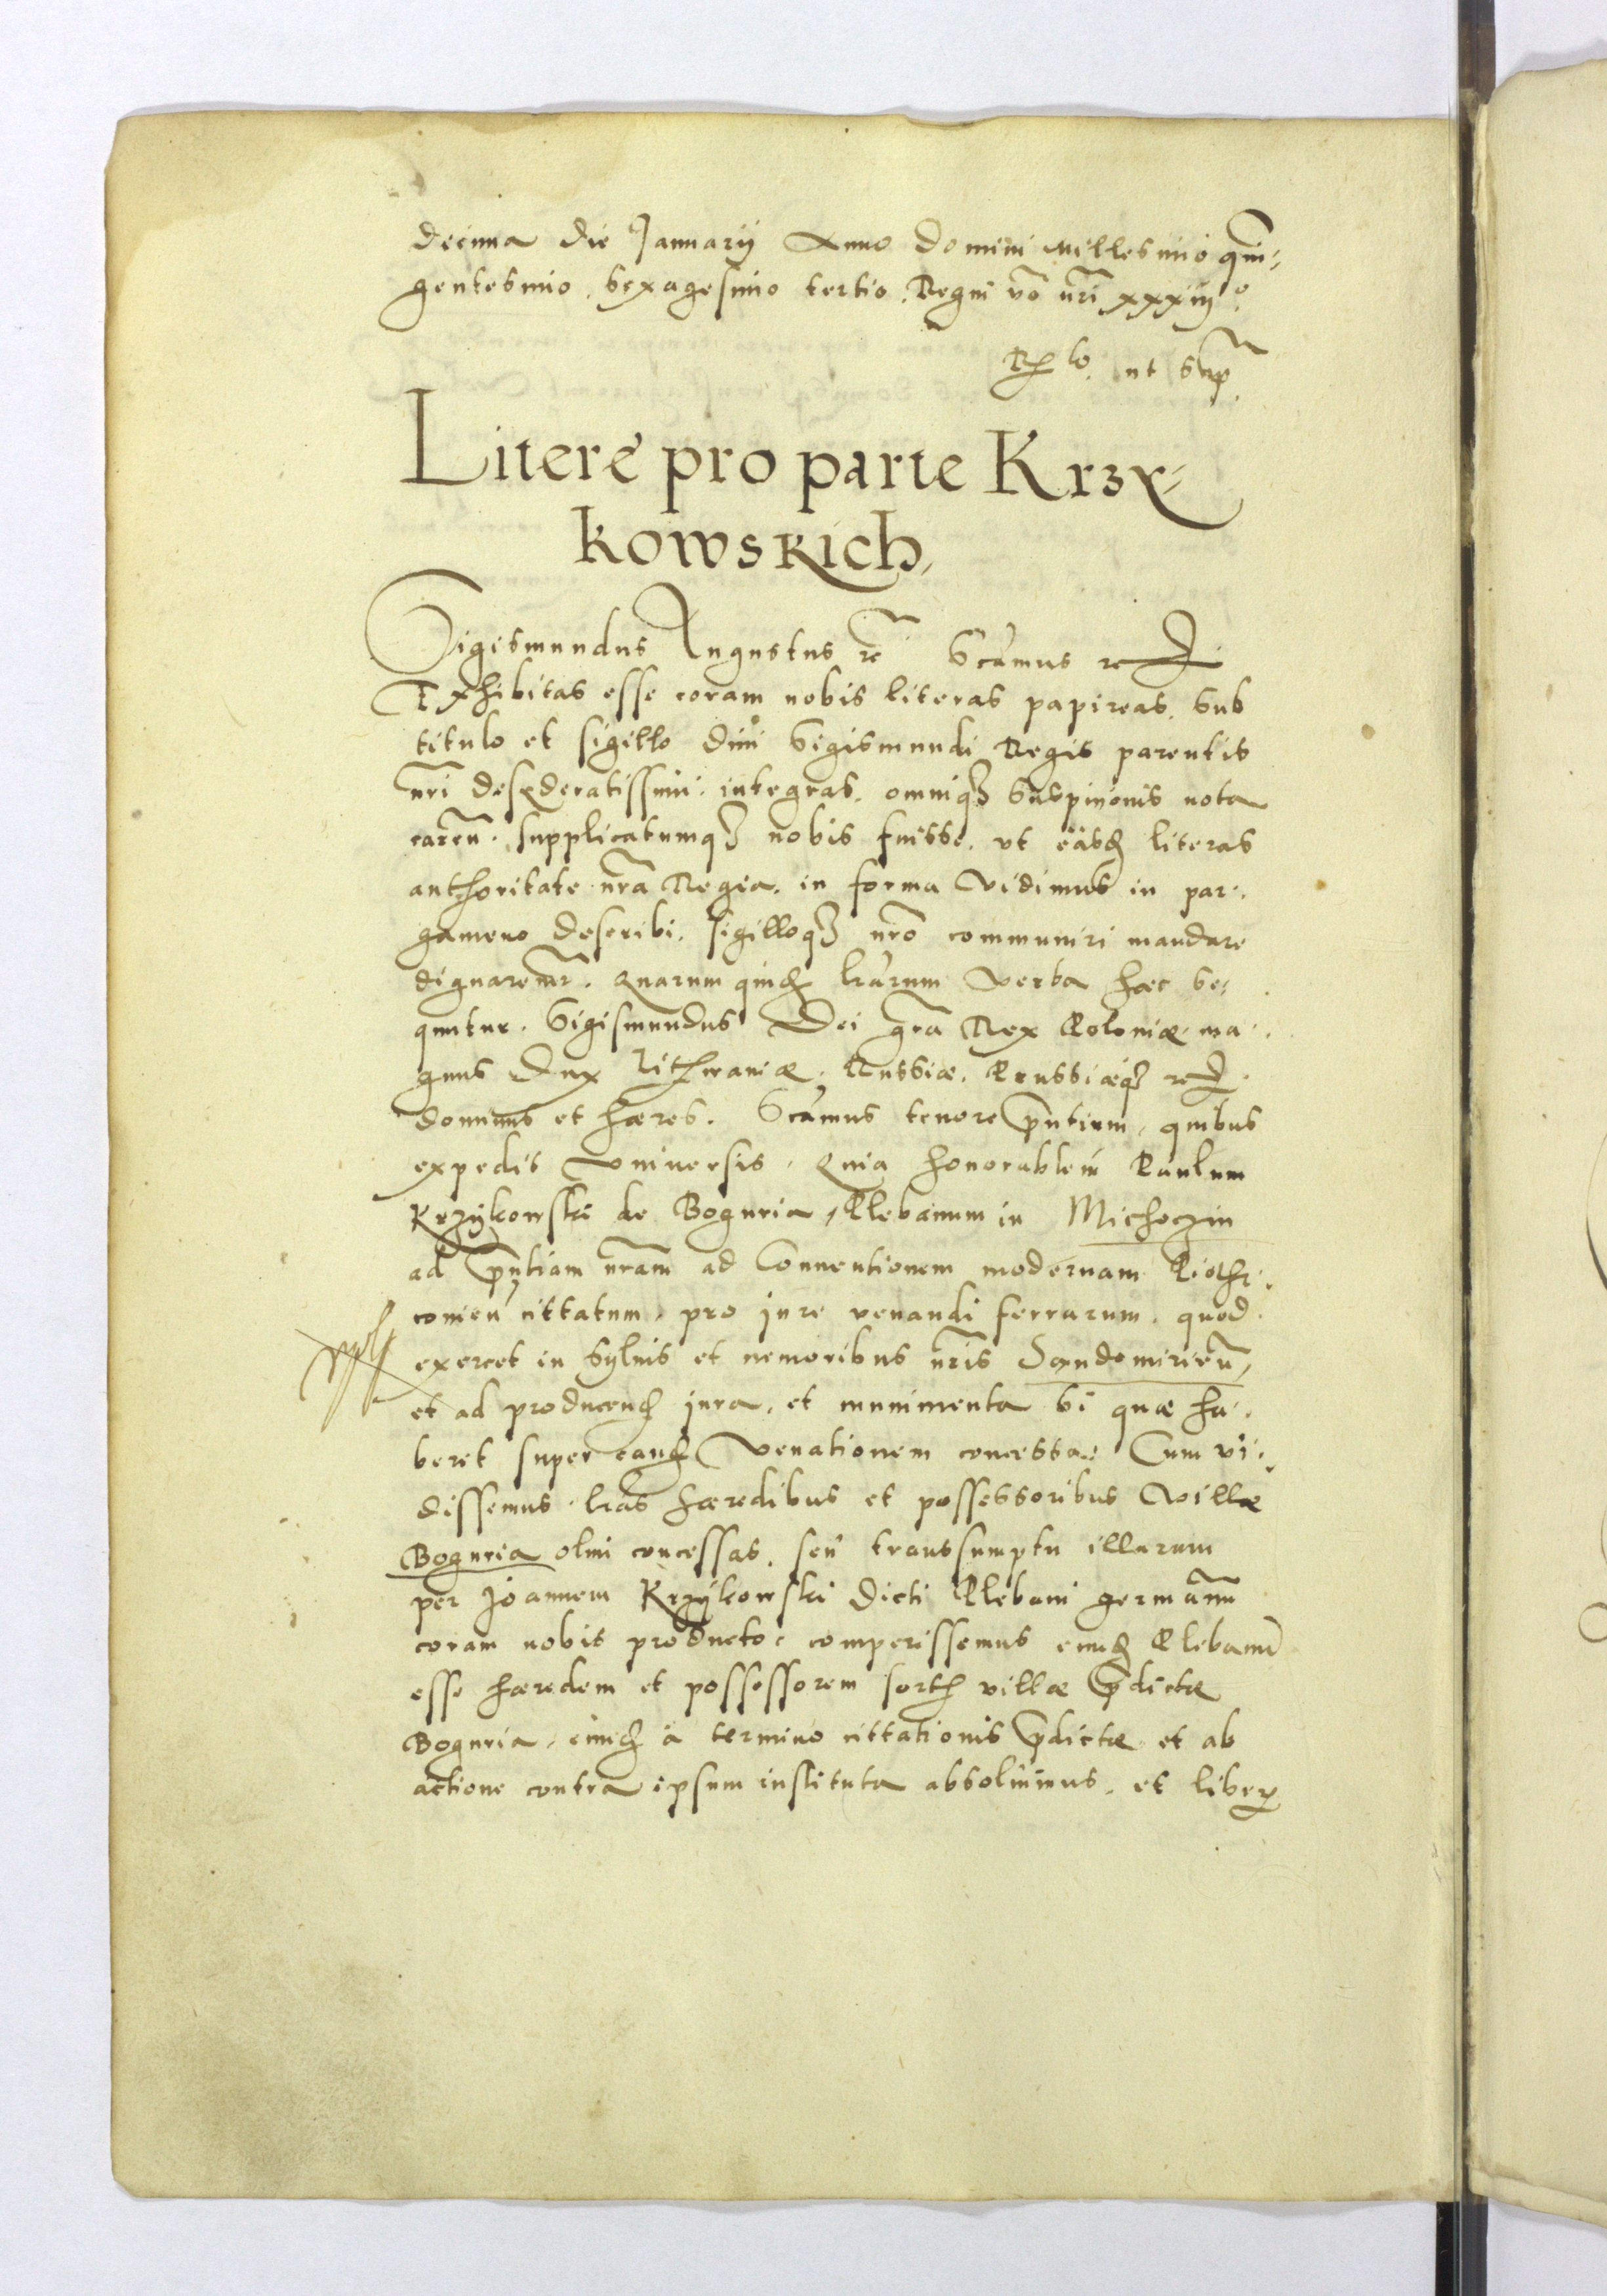 decima die Januarij Anno Domini Millesimo quin-
gentesimo, sexagesimo tertio, Regni vo nri xxxiij°.
Rx lo. ut sup.
Litere pro parte Krzy-
kowskich,
Sigismundus Augustus rc Scamus rc
Exhibitas esse coram nobis literas papireas, sub
titulo et sigillo dni Sigismundi Regis parentis
nri desyderatissimi, integras, omniq3 suspicionis nota
caren. supplicatumq3 nobis fuisse, ut easd literas
authoritate nra Regia, in forma Vidimus in par-
gameno describi, sigilloq3 nro communiri mandare
dignaremr. Quarum quid lrarum verba hæc se-
quntur. Sigismundus Dei gra Rex Poloniæ, ma-
gnus Dux Lithwaniæ, Russiæ, Prussiæq3 rc
dominus et hæres. Scamus tenore pntium, quibus
expedit universis, Quia honorablem Paulum
Krzykowski de Boguria, Plebanum in Michoczin
ad pntiam nram ad Conuentionem modernam Piothr-
comien cittatum, pro jure venandi ferrarum, quod
exercet in sylvis et nemoribus nris Sandomirien,
et ad producend jura, et munimenta si quæ ha-
beret super eand Venationem concessa: Cum vi-
dissemus lras hæredibus et possessoribus Villæ
Boguria olim concessas, seu transsumptu illarum
per Joannem Krzykowski dicti Plebani germanu
coram nobis producto: comperissemus eund Plebanu
esse hæredem et possessorem sort villæ pdictæ
Boguria, eund a termino cittationis pdictæ et ab
actione contra ipsum instituta absoluimus, et liber